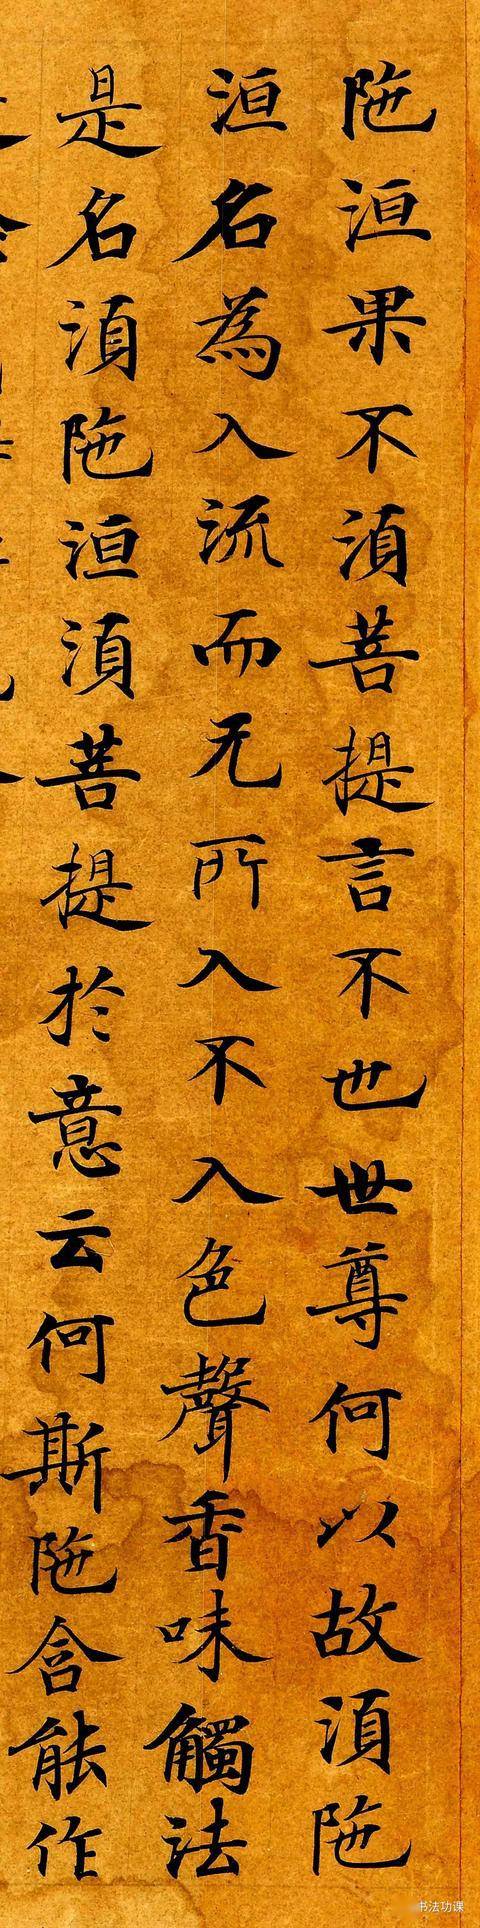 陁洹果不湏菩提言不也世尊何以故湏陁
洹名為入流而无所入不入色聲香味觸法
是名湏陁洹湏菩提於意云何斯陁含能作
书法功课